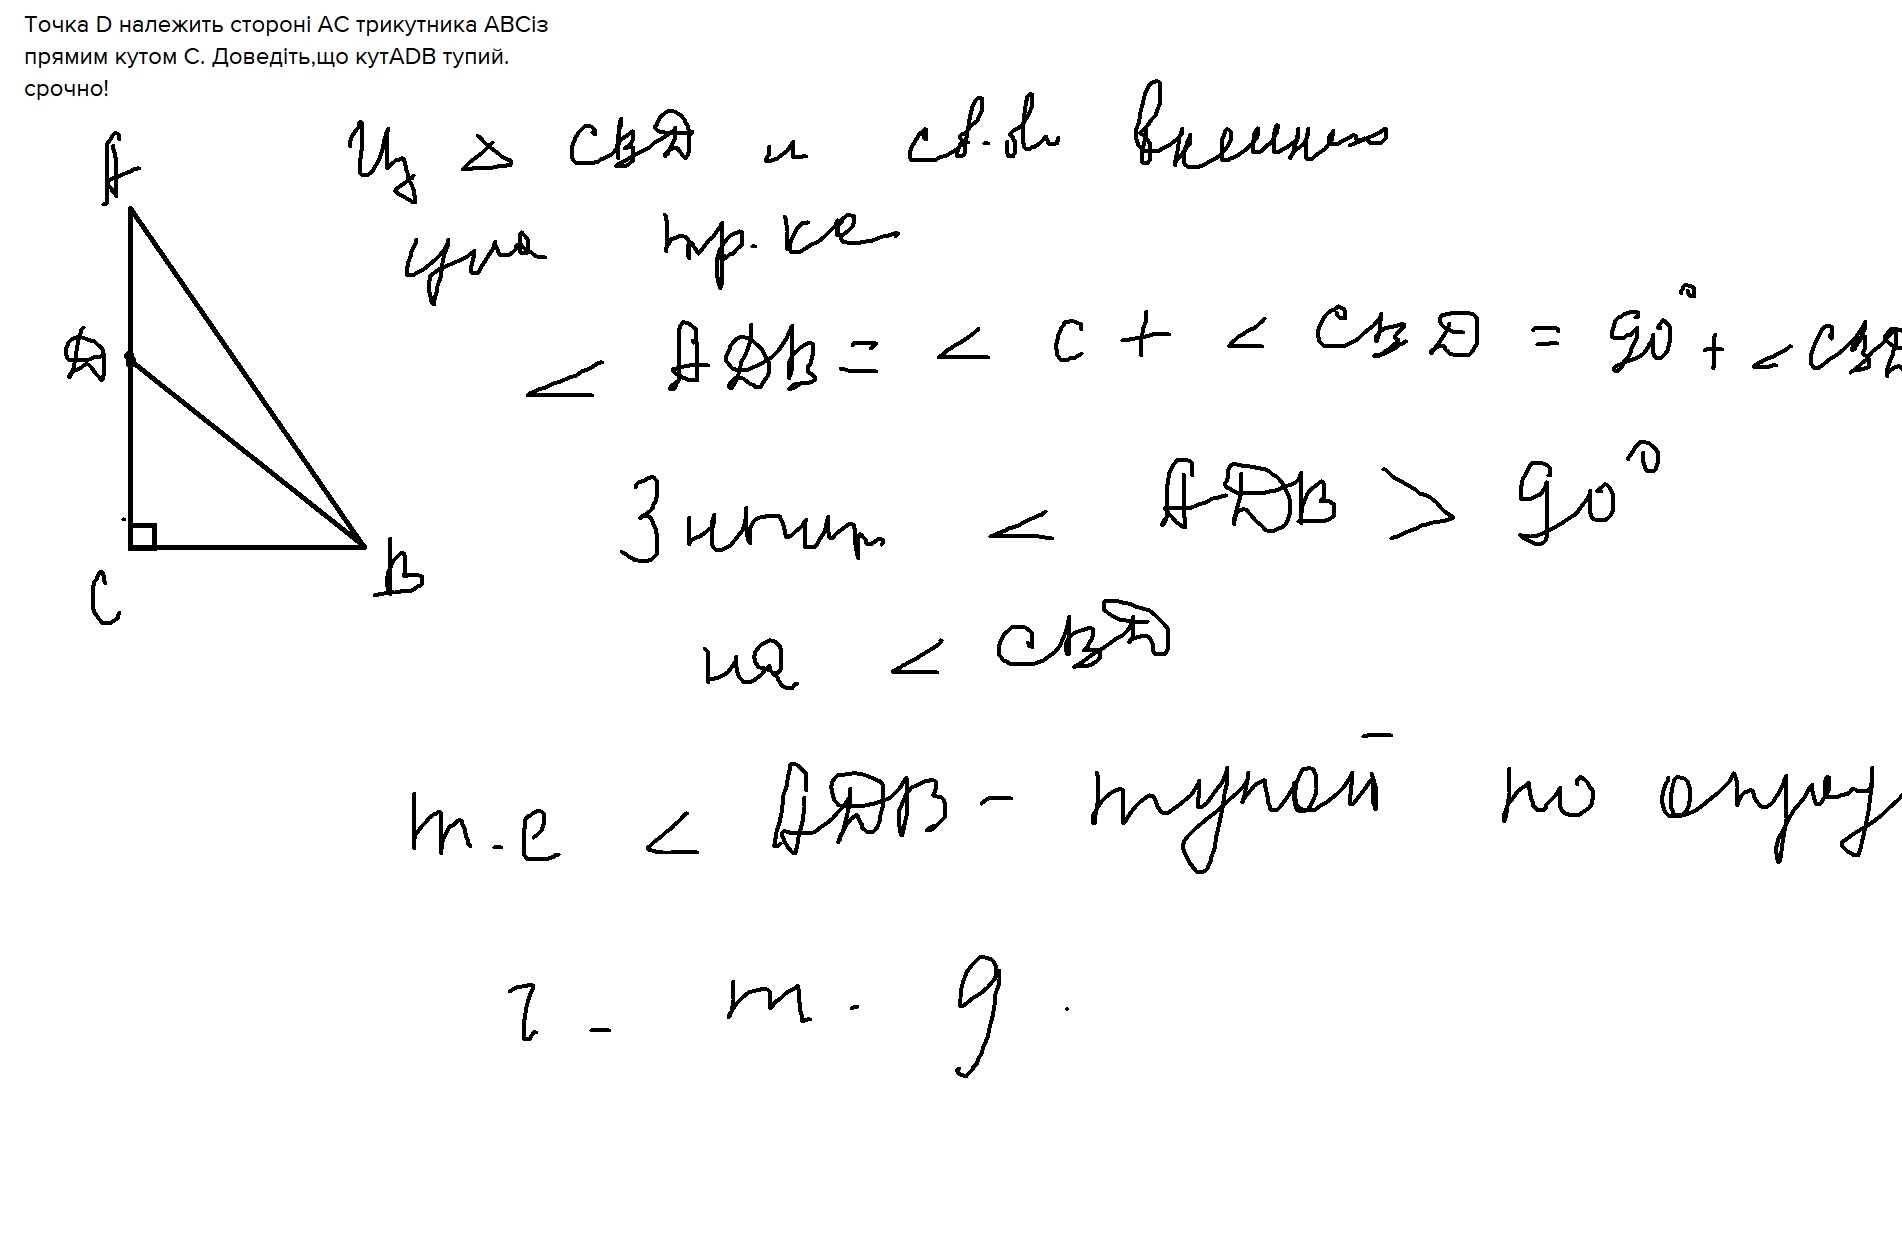 Точка D належить стороні AC трикутника ABCіз
прямим кутом C. Доведіть,що кутADB тупий.
срочно!
A
Из △ CBD и св-ва внешнего
угла тр.ка
D
< ADB = < C + < CBD = 90° + < CBD
Значит < ADB > 90°
C
B
на < CBD
т.е < ADB - тупой по опред
ч - т . д .